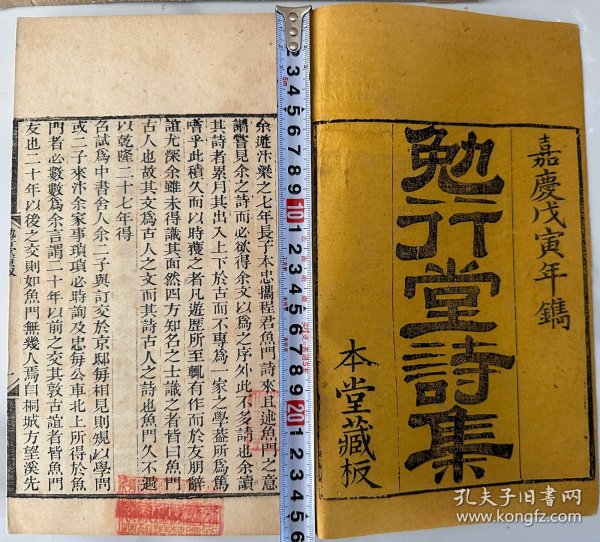 嘉慶戊寅年鐫
勉行堂詩集
本堂藏板
余遊汴梁之七年長子本忠攜程君魚門詩來且述魚門之意
謂嘗見余之詩而必欲得余文以為之序外此不多請也余讀
其詩者累月其出入上下於古而不專為一家之學蓋所為焉
嗜乎此積久而以時獲之者凡遊歷所至輒有作而於友朋辭
誼尤深余雖未得識其面然四方知名之士識之者皆曰魚門
古人也故其文為古人之文而其詩古人之詩也魚門久不遇
以乾隆二十七年得
名試為中書舍人余二子與訂交於京邸每相見則規以學問
或二子來汴余家事瑣瑣必時詢及忠每公車北上所得於魚
門者必數數為余言謂二十年以前之交其敦古誼者皆魚門
友也二十年以後之交則如魚門無幾人焉自桐城方望溪先
孔夫子旧书网
www.kongfz.com